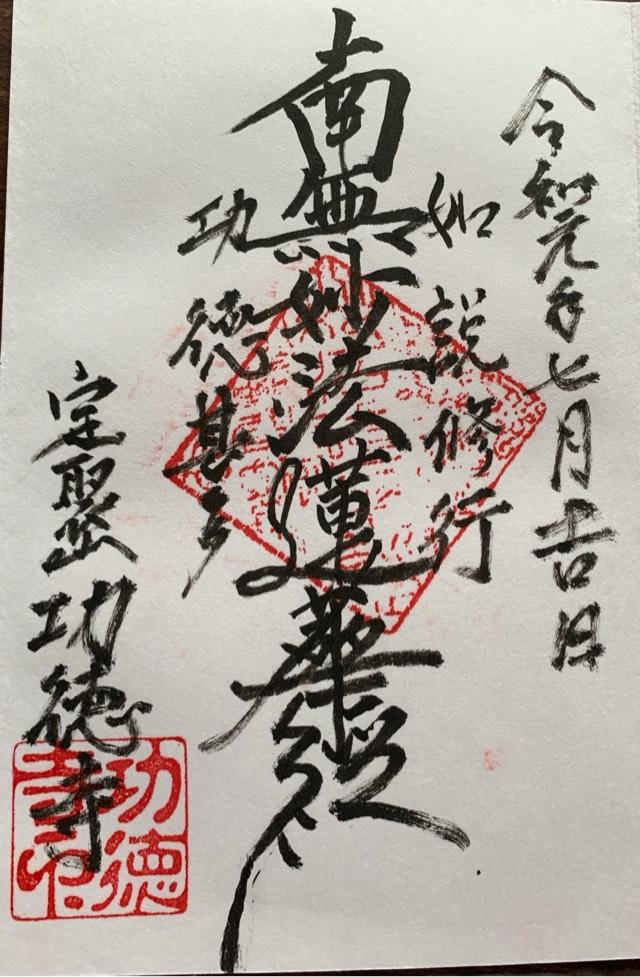 令和元年七月吉日
如説修行
南無妙法蓮華経
功徳甚多
定聖山 功徳寺
功徳寺印